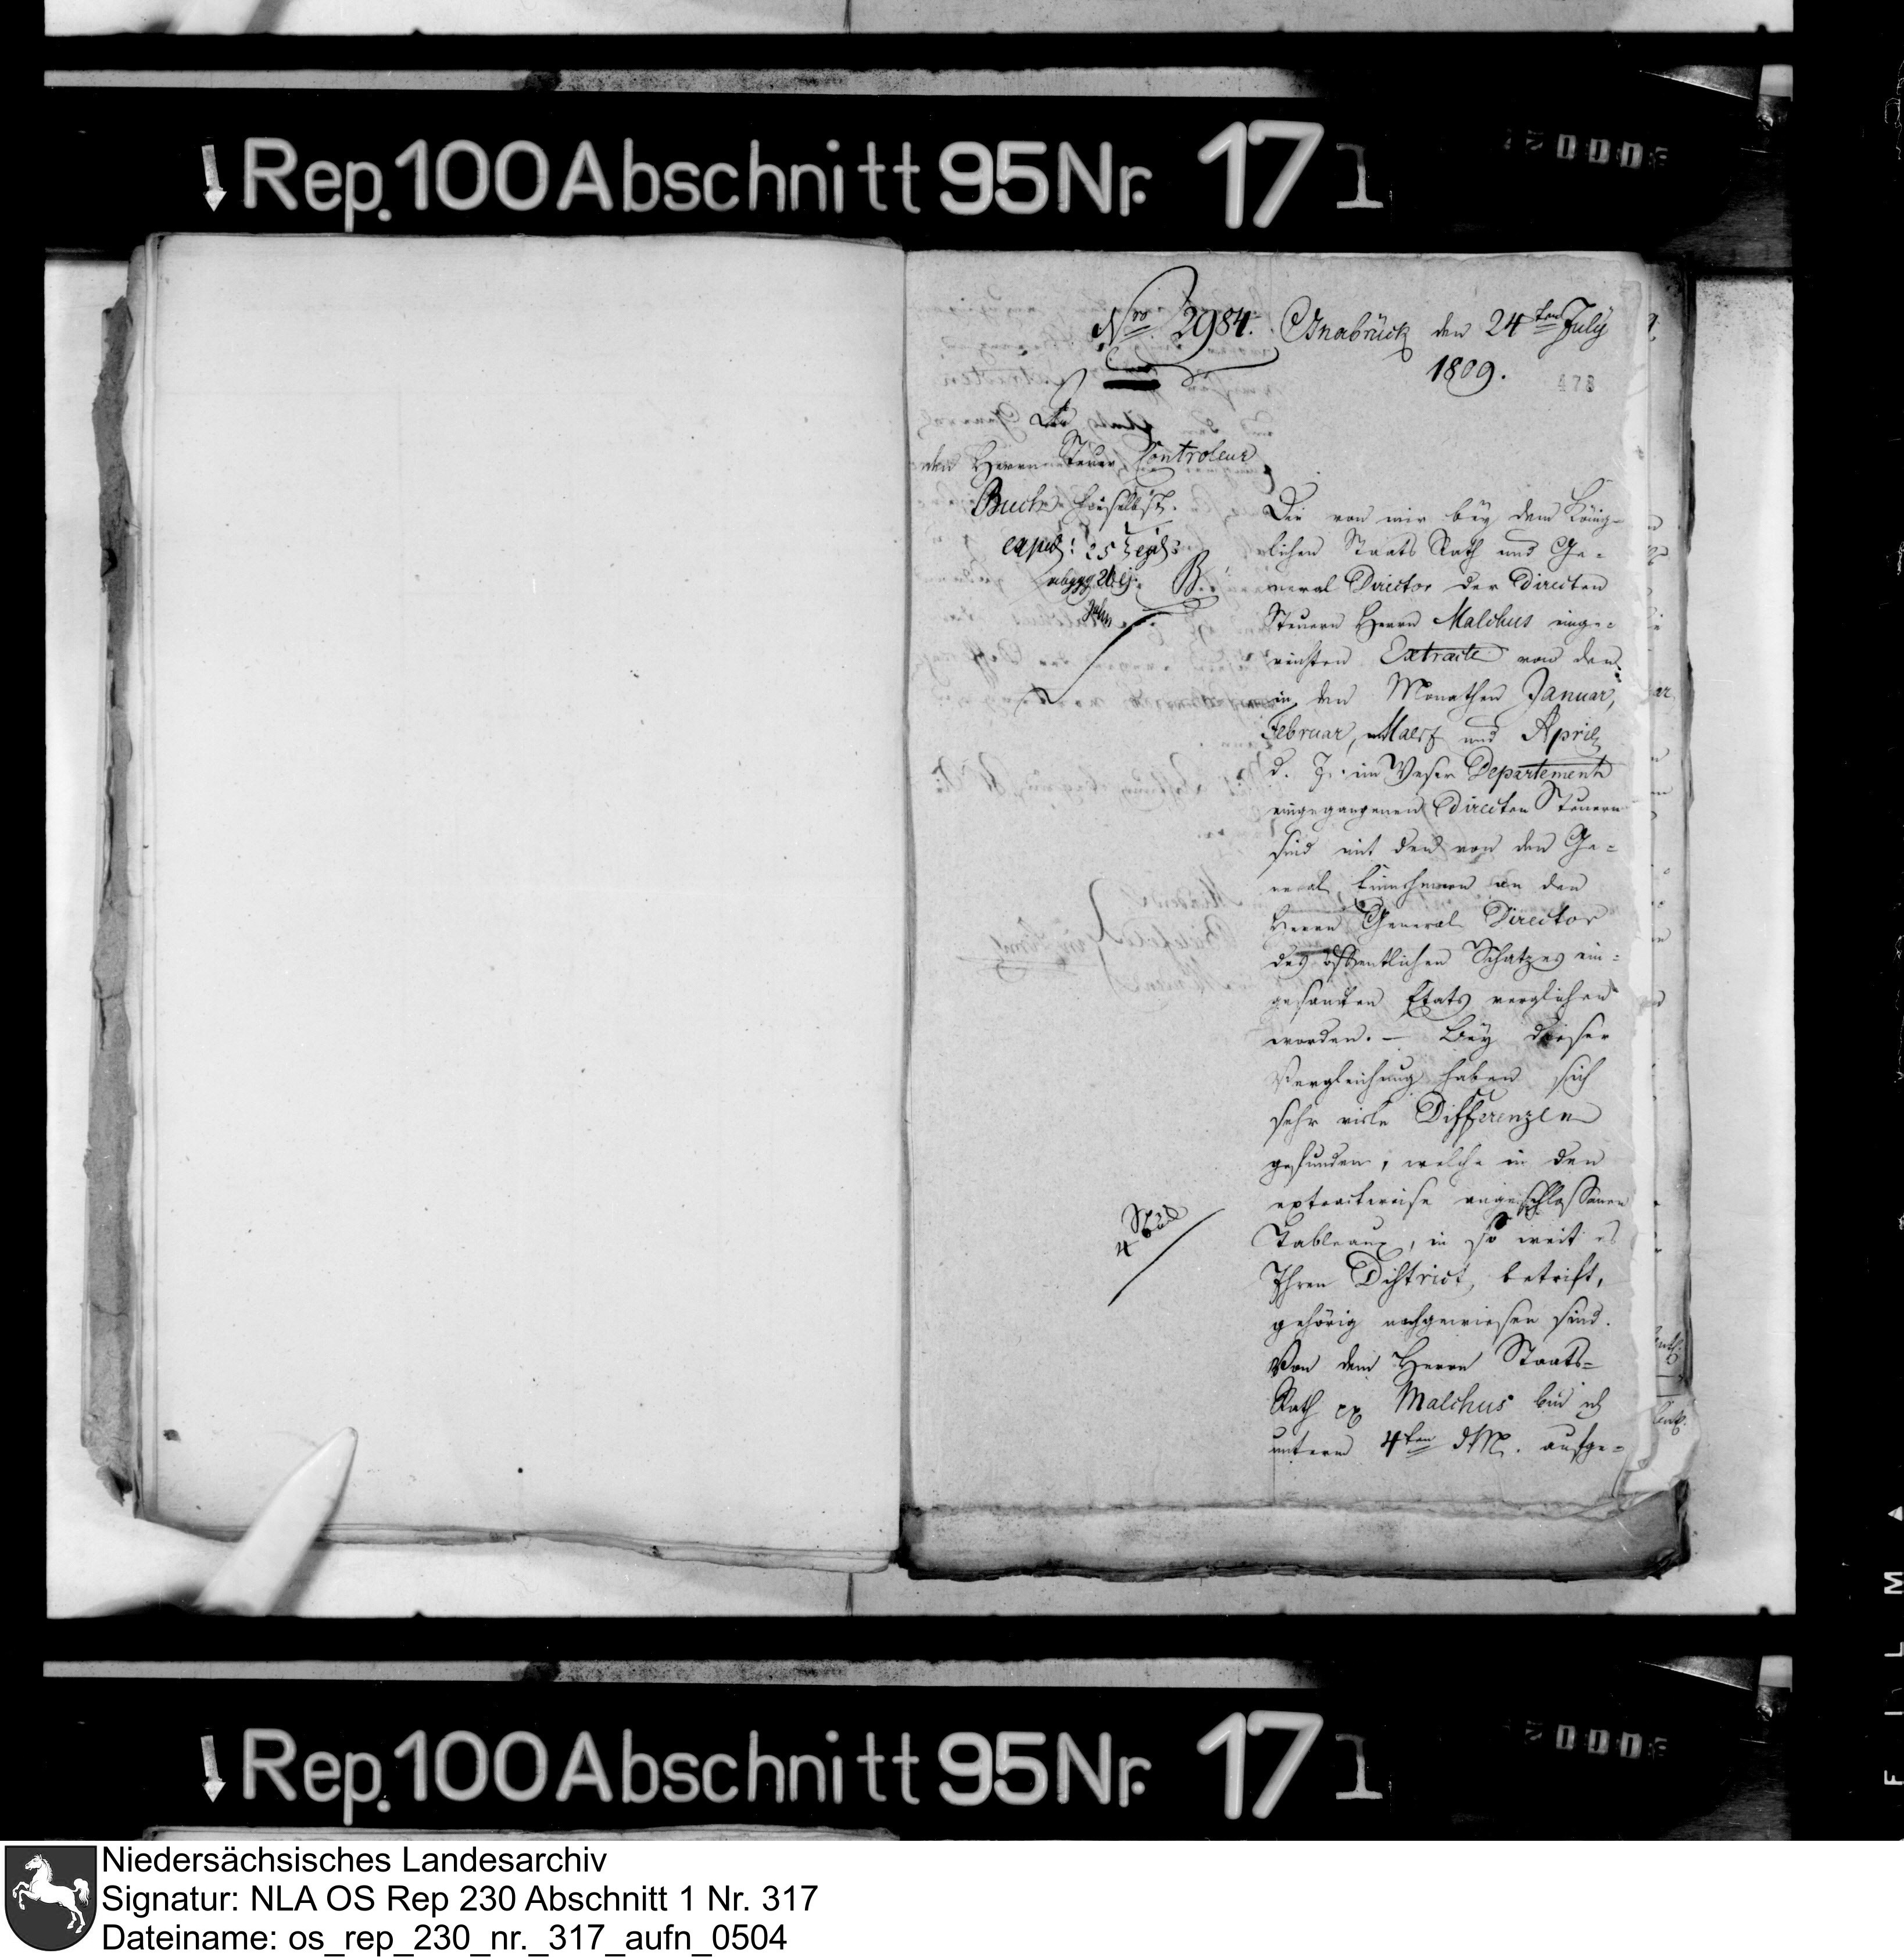 Rep. 100 Abschnitt 95 Nr. 171
Nro 2984. Osnabrück den 24ten July
1809.
478
An
den Herrn Steuer Controleur
Buch hieselbst.
Die von mir bey dem König-
lichen Staats Rath und Ge-
neral Director der Directen
Steuern Herrn Malchus einge-
reichten Extracte von den
in den Monathen Januar,
Februar, Maerz und April
d. J. im Weser Departement
eingegangenen Directen Steuern
sind mit den von den Ge-
neral Einnehmern an den
Herrn General Director
des öffentlichen Schatzes ein-
gesandten Etats verglichen
worden. – Bey dieser
Vergleichung haben sich
sehr viele Differenzen
gefunden, welche in den
extractweise angeschlossenen
4 Stück
Tableaux, in so weit es
Ihren District betrift,
gehörig nachgewiesen sind.
Von dem Herrn Staats-
Rath Malchus bin ich
unterm 4ten d. M. aufge-
Rep. 100 Abschnitt 95 Nr. 171
Niedersächsisches Landesarchiv
Signatur: NLA OS Rep 230 Abschnitt 1 Nr. 317
Dateiname: os_rep_230_nr._317_aufn_0504